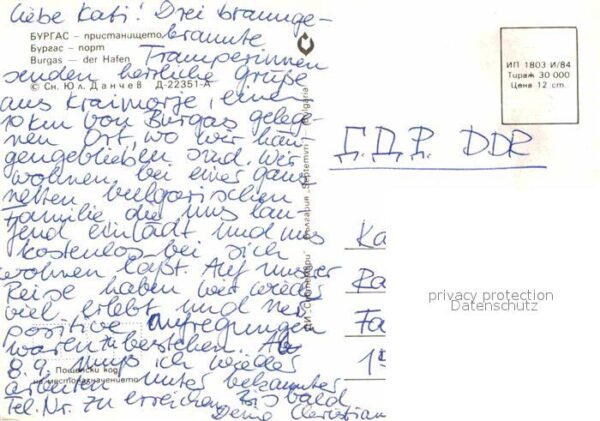 Liebe Kati! Drei braunge-
brannte
БУРГАС – пристанището
Бургас – порт
Burgas – der Hafen
Tramperinnen
senden herrliche Grüße
© Сн. Юл. Данчев Д-22351-А
aus Kraimorje, eine
10 km von Burgas gelege-
nen Ort, wo wir hän-
gengeblieben sind. Wir
wohnen bei einer ganz
netten bulgarischen
Familie die uns lau-
fend einlädt und uns
kostenlos bei sich
wohnen läßt. Auf unserer
Reise haben wir wieder
viel erlebt und nur
positive Aufregungen
waren zu bestehen. Ab
8.9. muß ich wieder
Пощенски код
на местоназначението
arbeiten unter bekannter
Tel. Nr. zu erreichen. Bis bald
Deine Christian
ДИ „Септември“ – България „Septemvri“ – Bulgaria
ИП 1803 И/84
Тираж 30 000
Цена 12 ст.
Г.Д.Р. DDR
Ka
Ra
Fa
1
privacy protection
Datenschutz